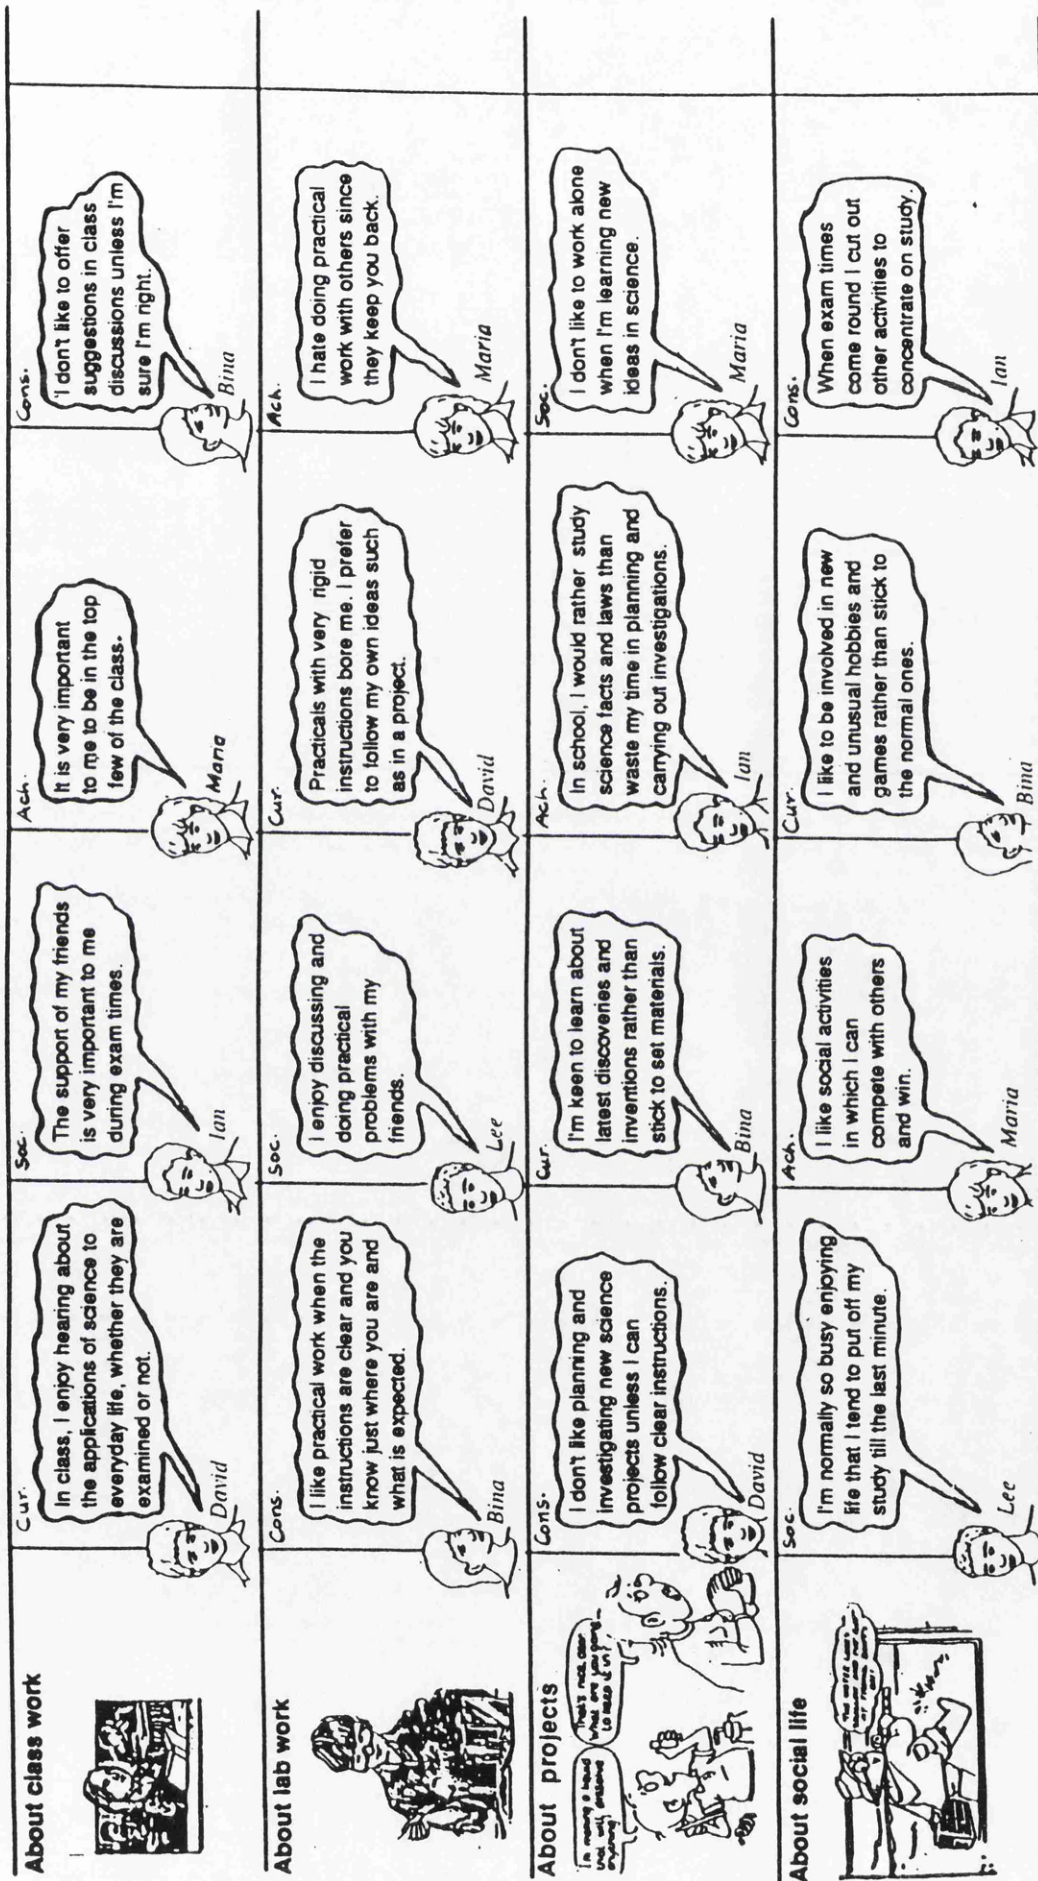 About class work
Cur.
In class, I enjoy hearing about
the applications of science to
everyday life, whether they are
examined or not.
David
Soc.
The support of my friends
is very important to me
during exam times.
Ian
Ach.
It is very important
to me to be in the top
few of the class.
Maria
Cons.
I don't like to offer
suggestions in class
discussions unless I'm
sure I'm right.
Bina
About lab work
Cons.
I like practical work when the
instructions are clear and you
know just where you are and
what is expected.
Bina
Soc.
I enjoy discussing and
doing practical
problems with my
friends.
Lee
Cur.
Practicals with very rigid
instructions bore me. I prefer
to follow my own ideas such
as in a project.
David
Ach.
I hate doing practical
work with others since
they keep you back.
Maria
About projects
I'm making a liquid
that will dissolve
anything
That's nice dear
what are you going
to keep it in?
Cons.
I don't like planning and
investigating new science
projects unless I can
follow clear instructions.
David
Cur.
I'm keen to learn about
latest discoveries and
inventions rather than
stick to set materials.
Bina
Ach.
In school, I would rather study
science facts and laws than
waste my time in planning and
carrying out investigations.
Ian
Soc.
I don't like to work alone
when I'm learning new
ideas in science.
Maria
About social life
Soc.
I'm normally so busy enjoying
life that I tend to put off my
study till the last minute.
Lee
Ach.
I like social activities
in which I can
compete with others
and win.
Maria
Cur.
I like to be involved in new
and unusual hobbies and
games rather than stick to
the normal ones.
Bina
Cons.
When exam times
come round I cut out
other activities to
concentrate on study.
Ian